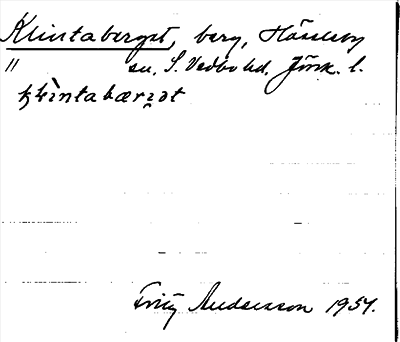 Klintaberget, berg, Hässleby
" sn, S. Vedbo hd. Jönk. l.
klìntabærịət
Fritz Andersson 1957.